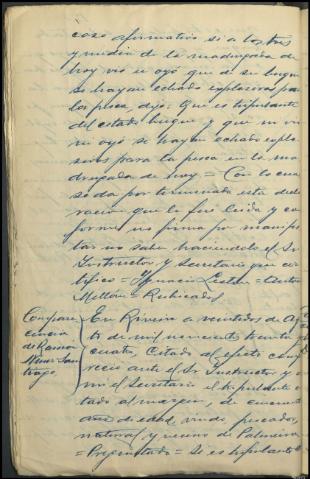 caso afirmativo si a las tres
y media de la madrugada de
hoy vió u oyó que de su buque
se hayan echado explosivos pa
la pesca, dijo: Que es tripulante
del citado buque y que ni vió
ni oyó se hayan echado explo
sivos para la pesca en la ma
drugada de hoy = Con lo cual
se da por terminada esta decla
ración que le fué leida y con
forme no firma por manifes
tar no saber haciendolo el Sr
Instructor y Secretario que cer
tifico = Ignacio =
Millán = Rubricados
Comparecencia
de Ramon
Santiago
En Riveira a veintidos de Ag
to de mil novecientos treinta
cuatro, Citado al efecto comp
reció ante el Sr Instructor y
mi el Secretario el tripulante
tado al margen, de cincuenta
años de edad, viudo, pescador,
natural y vecino de Palmeira
= Preguntado = Si es tripulante